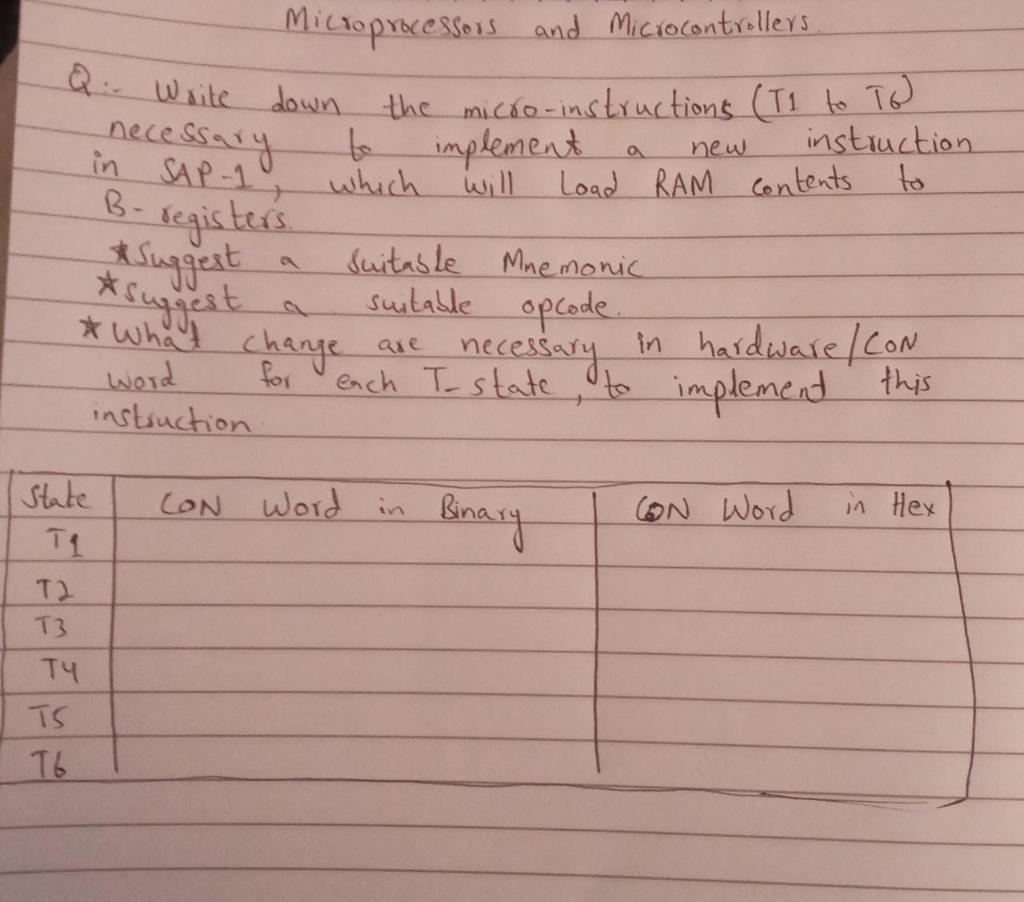 Microprocessors and Microcontrollers.
Q:- Write down the micro-instructions (T1 to T6)
necessary to implement a new instruction
in SAP-1, which will Load RAM contents to
B-registers.
*Suggest a suitable Mnemonic
*Suggest a suitable opcode.
*What change are necessary in hardware/CON
word for each T-state, to implement this
instruction.
State CON Word in Binary CON Word in Hex
T1
T2
T3
T4
T5
T6